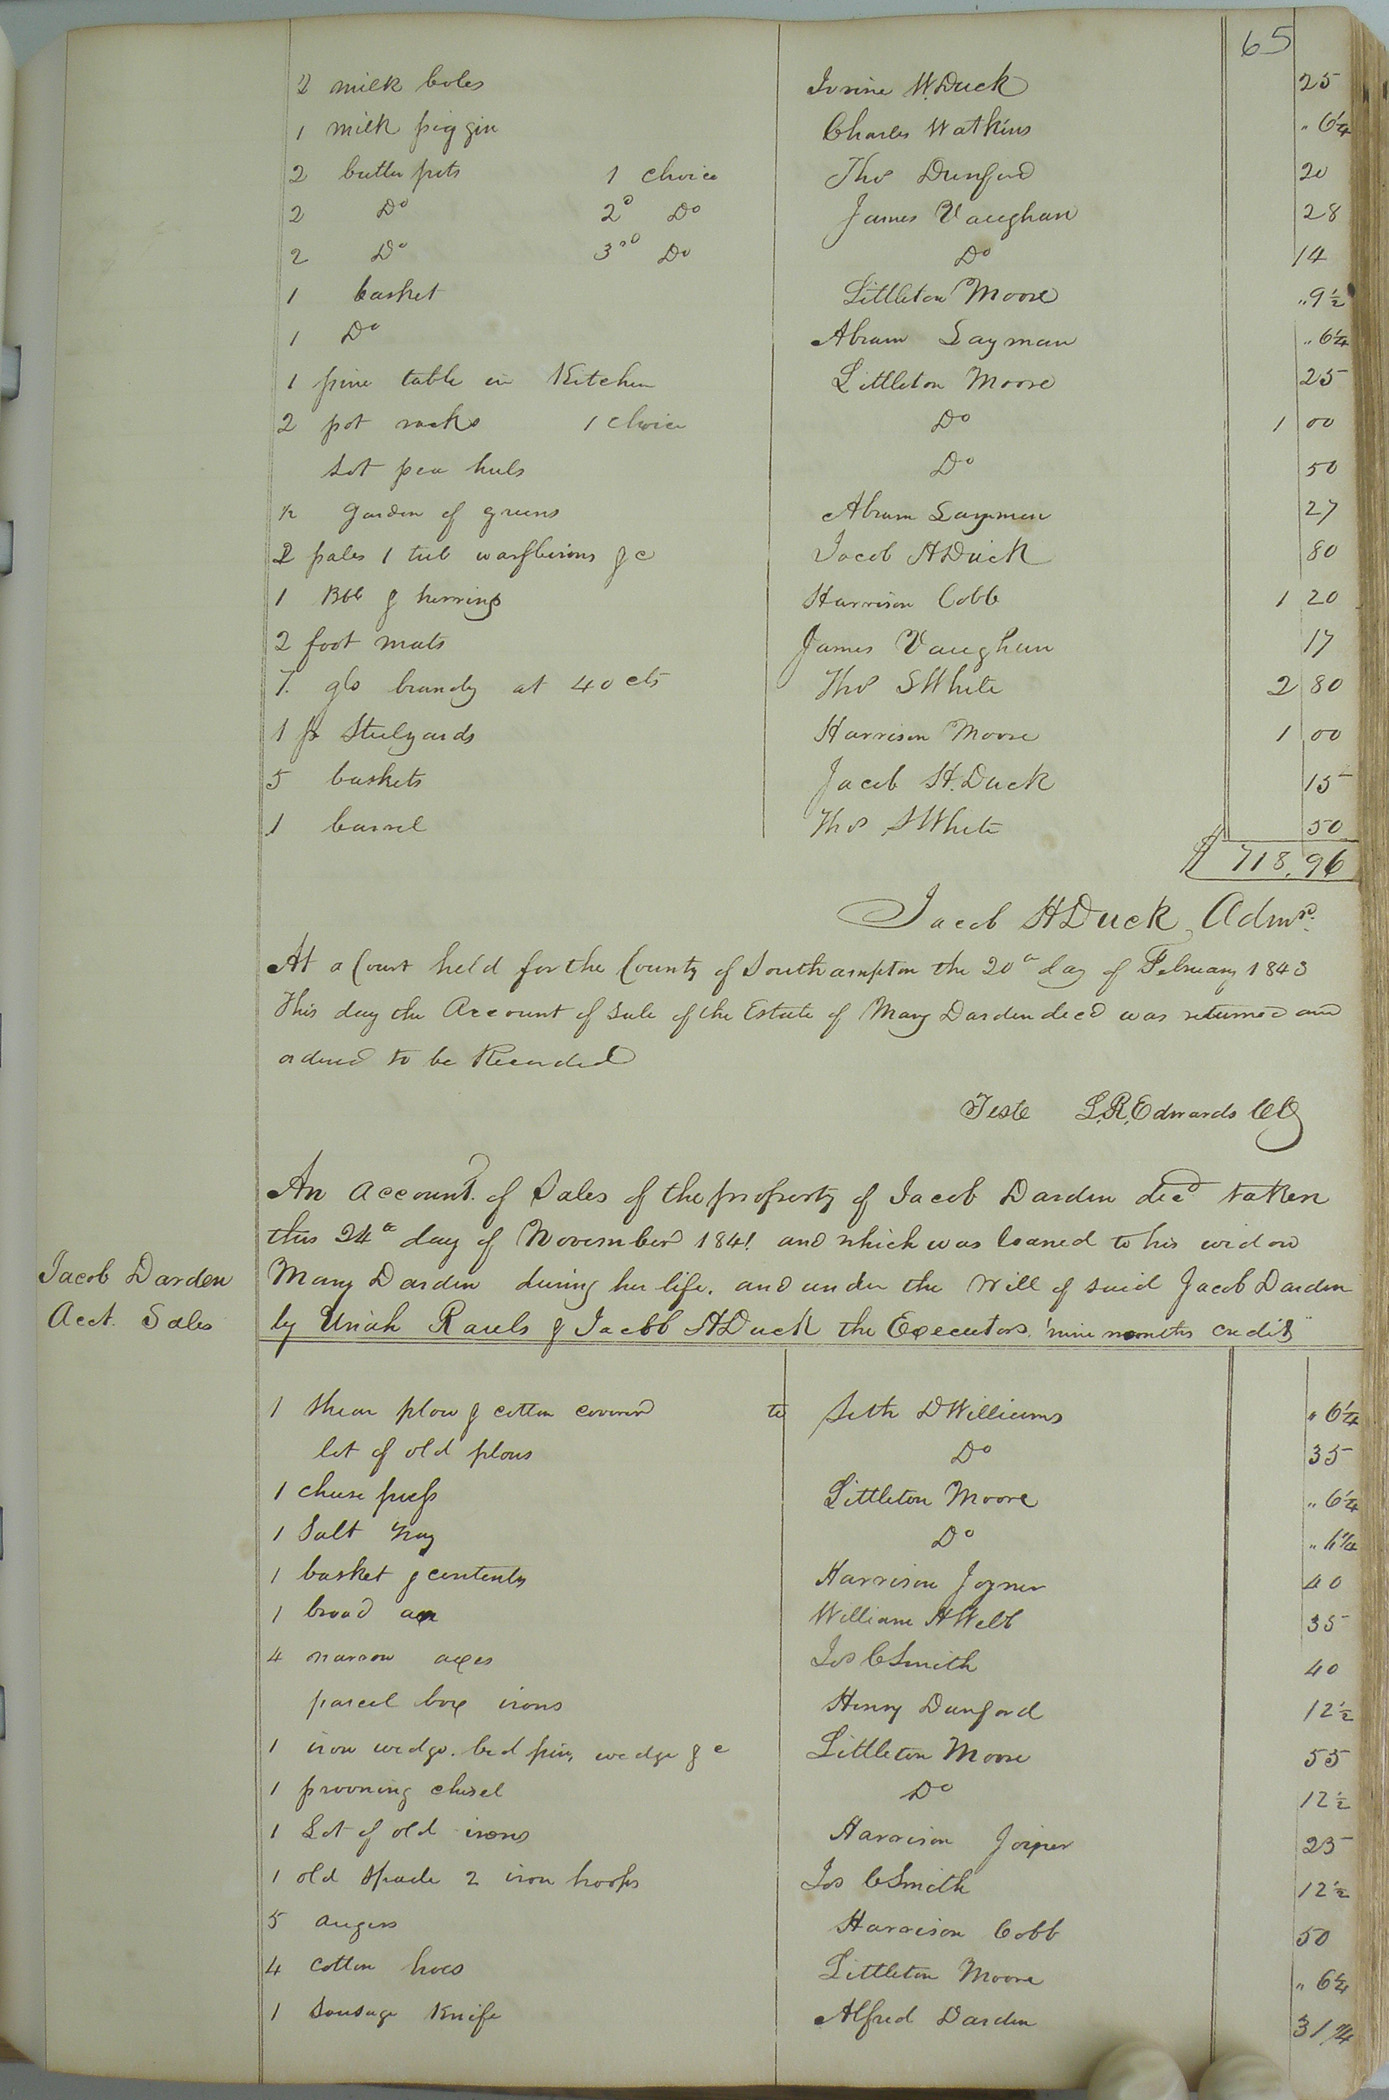 65
2 milk boles Irvine W. Duck 25
1 milk piggin Charles Watkins " 6¼
2 butter pots 1 choice Thos Dunford 20
2 Do 2d Do James Vaughan 28
2 Do 3rd Do Do 14
1 basket Littleton Moore " 9½
1 Do Abram Layman " 6¼
1 pine table in Kitchen Littleton Moore 25
2 pot racks 1 choice Do 1 00
Lot pea huls Do 50
½ Garden of greens Abram Layman 27
2 pales 1 tub &c Jacob H Duck 80
1 Bbl of herrings Harrison Cobb 1 20
2 foot mats James Vaughan 17
7. gls brandy at 40 cts Thos S White 2 80
1 pr Steelyards Harrison Moore 1 00
5 baskets Jacob H. Duck 15
1 barrel Thos S White 50
$ 718.96
Jacob H Duck Admr.
At a Court held for the County of Southampton the 20th day of February 1843
This day the Account of Sale of the Estate of Mary Darden decd was returned and
ordered to be Recorded
Teste L.R. Edwards CC
An account. of Sales of the property of Jacob Darden decd taken
this 24th day of November 1841 and which was loaned to his widow
Jacob Darden Mary Darden during her life. and under the Will of said Jacob Darden
Acct. Sales by Uriah Rawls & Jacob H Duck the Executors. nine months credit
1 Shear plow & cotton coverer to Seth D Williams " 6¼
lot of old plows Do 35
1 cheese press Littleton Moore " 6¼
1 Salt Do "
1 basket & contents Harrison Joyner 40
1 broad axe William H Webb 35
4 narrow axes Jos C Smith 40
parcel box irons Henry Dunford 12½
1 iron wedge. bed pin, wedge &c Littleton Moore 55
1 prooning chisel Do 12½
1 Lot of old irons Harrison Joiner 25
1 old Spade 2 iron hoops Jos C Smith 12½
5 augers Harrison Cobb 50
4 cotton hoes Littleton Moore " 6¼
1 Sausage Knife Alfred Darden 31¼